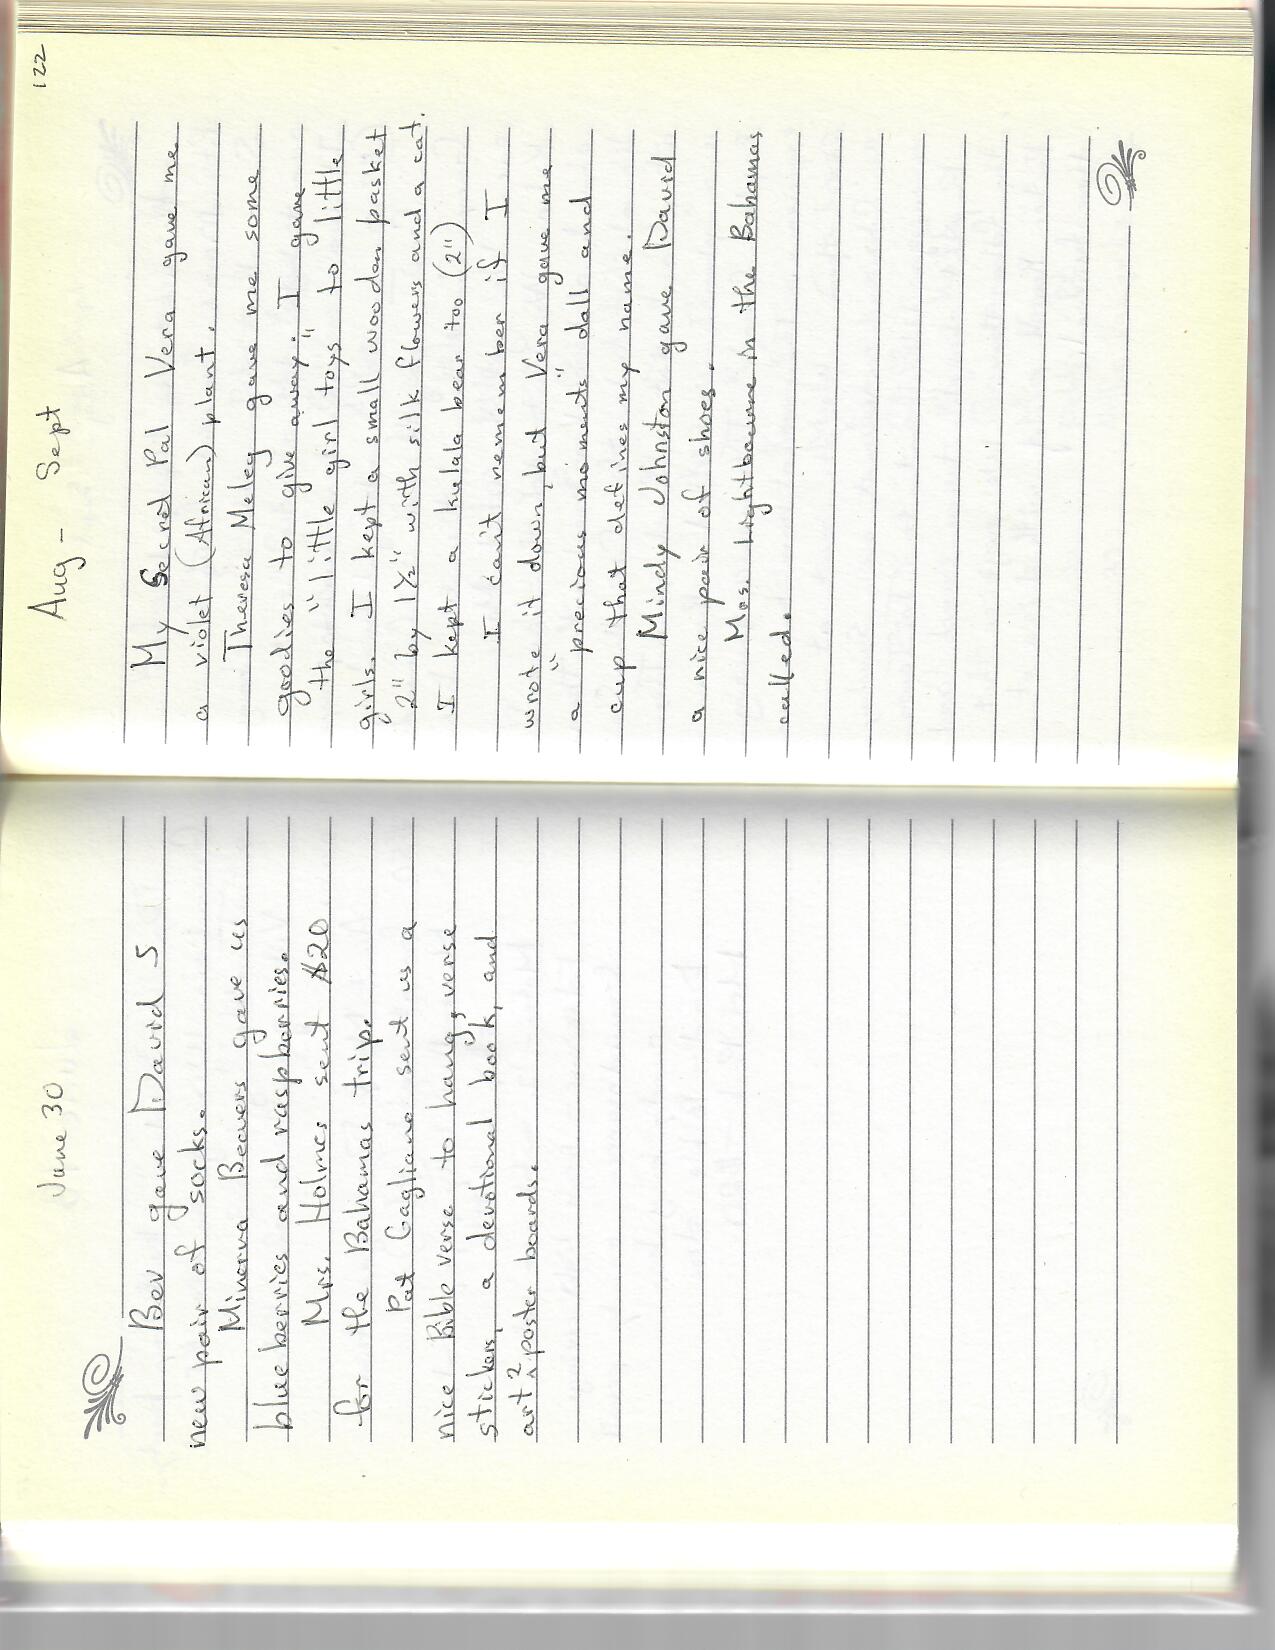 June 30
Bev gave David 5
new pair of socks.
Minerva Beavers gave us
blue berries and raspberries.
Mrs. Holmes sent $20
for the Bahamas trip.
Pat Gagliano sent us a
nice Bible verse to hang, verse
stickers, a devotional book, and
art ^ 2 poster boards.
122
Aug - Sept
My Secret Pal Vera gave me
a violet (African) plant.
Theresa Meley gave me some
goodies to give away. I gave
the "little girl toys" to little
girls. I kept a small wooden basket
2" by 1½" with silk flowers and a cat.
I kept a kulala bear too (2")
I can't remember if I
wrote it down, but Vera gave me
a "precious moments" doll and
cup that defines my name.
Mindy Johnston gave David
a nice pair of shoes.
Mrs. Lightbourne in the Bahamas
called.